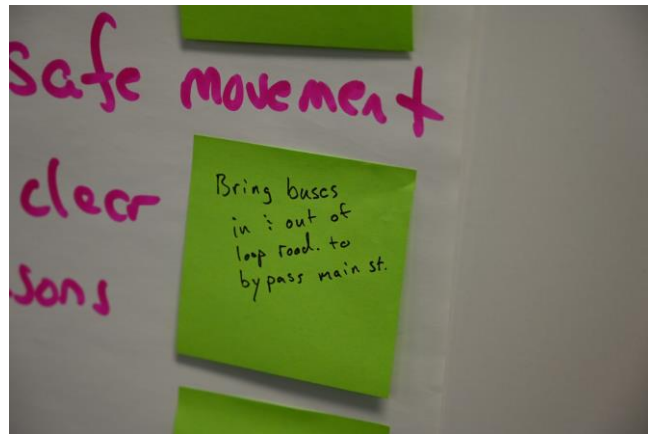 safe movement
clear
sons
Bring buses
in & out of
loop road. to
bypass main st.